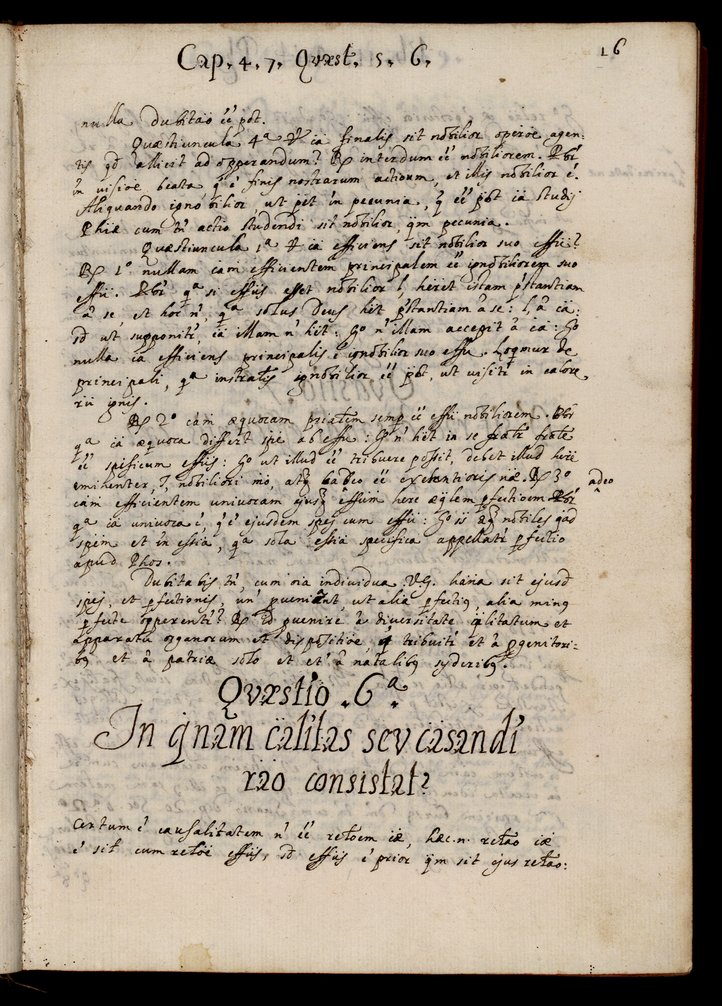 Cap. 4. 7. Quæst. 5. 6.
16
nulla dubitao ee pot.
Quæstiuncula 4ª Vt cã finalis sit nobilior operõe agen-
tis qd allicit ad opperandum? R interdum ee nobiliorem. Pbr
in visiõe beata qª ẽ finis nostrarum actionum, et illis nobilior ẽ.
Aliquando ignobilior ut pet in pecunia, q ee pot cã studij
Phiæ cum tñ actio studendi sit nobilior, qm pecunia.
Quæstiuncula 1ª Vt cã efficiens sit nobilior suo effu?
R 1º nullam cam efficientem principalem ee ignobiliorem suo
effu. Pbr qª si effus esset nobilior l, heret istam pstantiam
a se et hoc n, qª solus Deus het pstantiam a se: l, a cã:
sd ut supponitr, cã illam n het: Go n illam accepit a cã: Go
nulla cã efficiens principalis ẽ ignobilior suo effu. Loqmur de
principali, qª instrales ignobilior ee pot, ut visitr in calore
rij ignis.
R 2º cam æquocam priatem semp ee effu nobiliorem. Pbr
qª cã æquoca differt spe ab effu: Go n het in se
ee spificum effus: Go ut illud ee tribuere possit, debet illud here
eminenter, nobiliori mo, atq adeo ee excellentioris næ. R 3º adeo
cam efficientem univocam ejusq effum here æqlem pfectioem Pbr
qª cã univoca ẽ, qª ẽ ejusdem spej cum effu: Go ij æq nobiles qad
spem et in essia, qª sola essia specifica appellatr pfectio
apud Phos.
Dubitabis tñ, cum oia individua V.G. haia sit ejusd
spej, et pfectionis, un' pueniat, ut alia pfectiq, alia minq
pfecte opperentr? R id puenire a diversitate qlitatum et
apparatu organorum et dispositiõe, q tribuitr et à pgenitori-
bq et à patriæ solo et et' à natalibq syderibq.
Quæstio .6.ª
In qnam calitas seu casandi
rao consistat?
Certum ẽ causalitatem n ee retoem cæ, hæc .n. retao cæ
ẽ sit cum retoe effus, sd effus ẽ prior qm sit ejus retao: